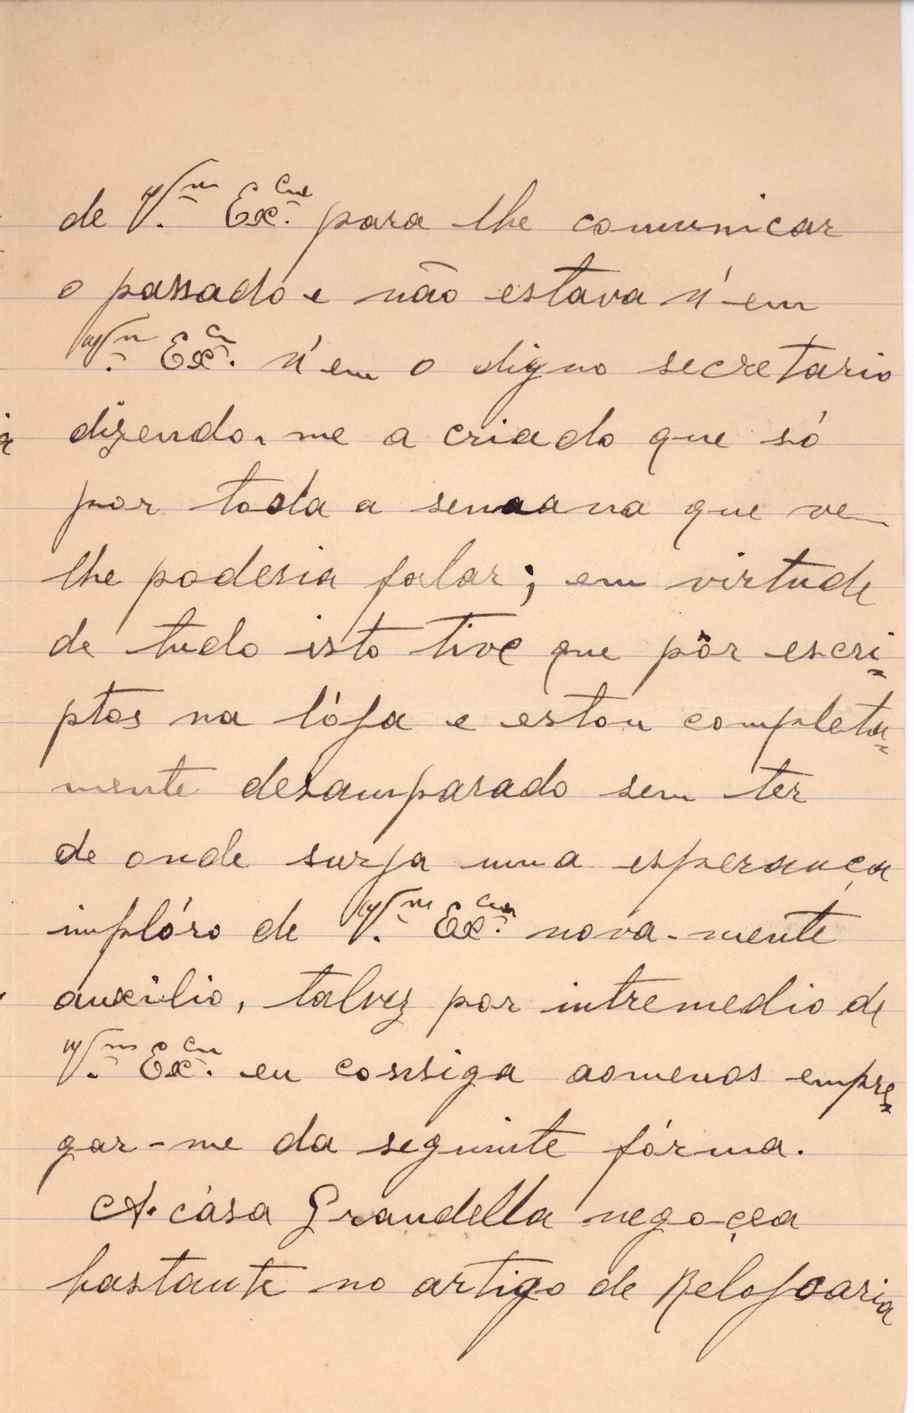 de V.ª Ex.cia para lhe comunicar
o passado e não estava n'em
V.ª Ex.cia n'em o digno secretario
dizendo-me a criado que só
por toda a semana que ve
lhe poderia falar; em virtude
de tudo isto tive que pôr escri=
ptos na lója e estou completa=
mente desamparado sem ter
de onde surja uma esperança
implóro de V.ª Ex.cia nova-mente
auxilio, talvez por intremedio de
V.ª Ex.cia eu consiga aomenos empre=
gar-me da seguinte fórma.
A casa Grandella negoçea
bastante no artigo de Relojoaria